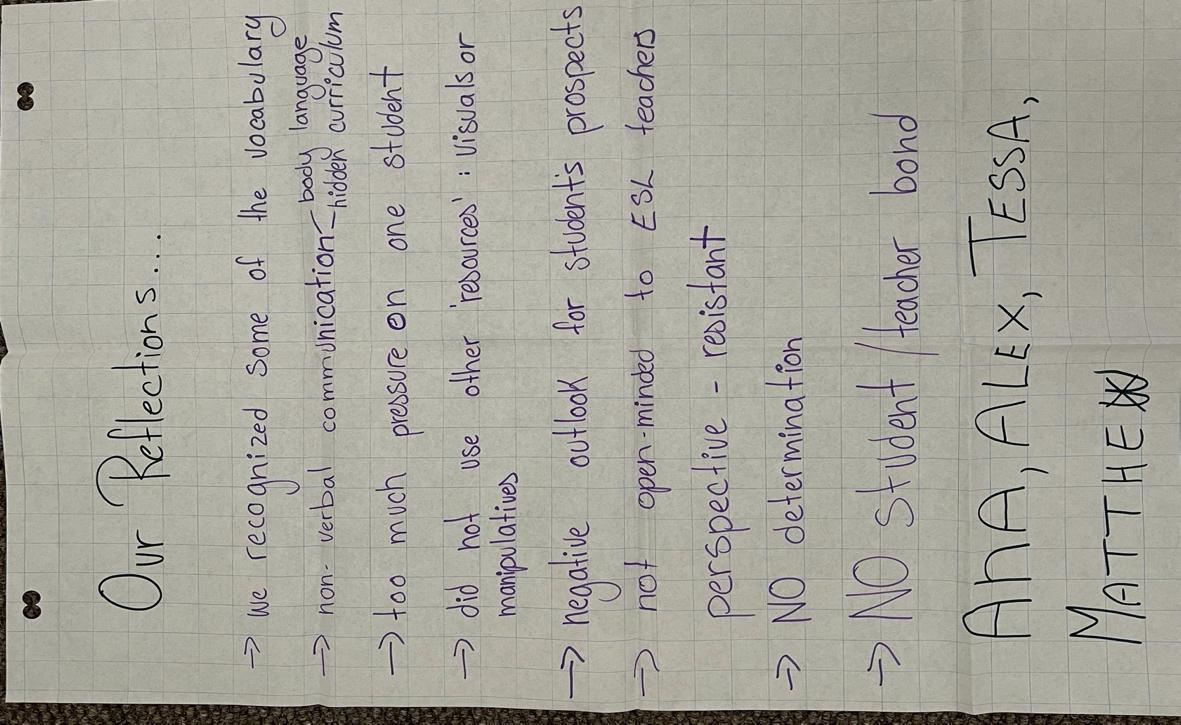 Our Reflections...
→ we recognized some of the vocabulary
→ non-verbal communication – body language
– hidden curriculum
→ too much pressure on one student
→ did not use other 'resources' : visuals or
manipulatives
→ negative outlook for student's prospects
→ not open-minded to ESL teachers
perspective - resistant
→ NO determination
→ NO student / teacher bond
AnA, ALEX, TESSA,
MATTHEW